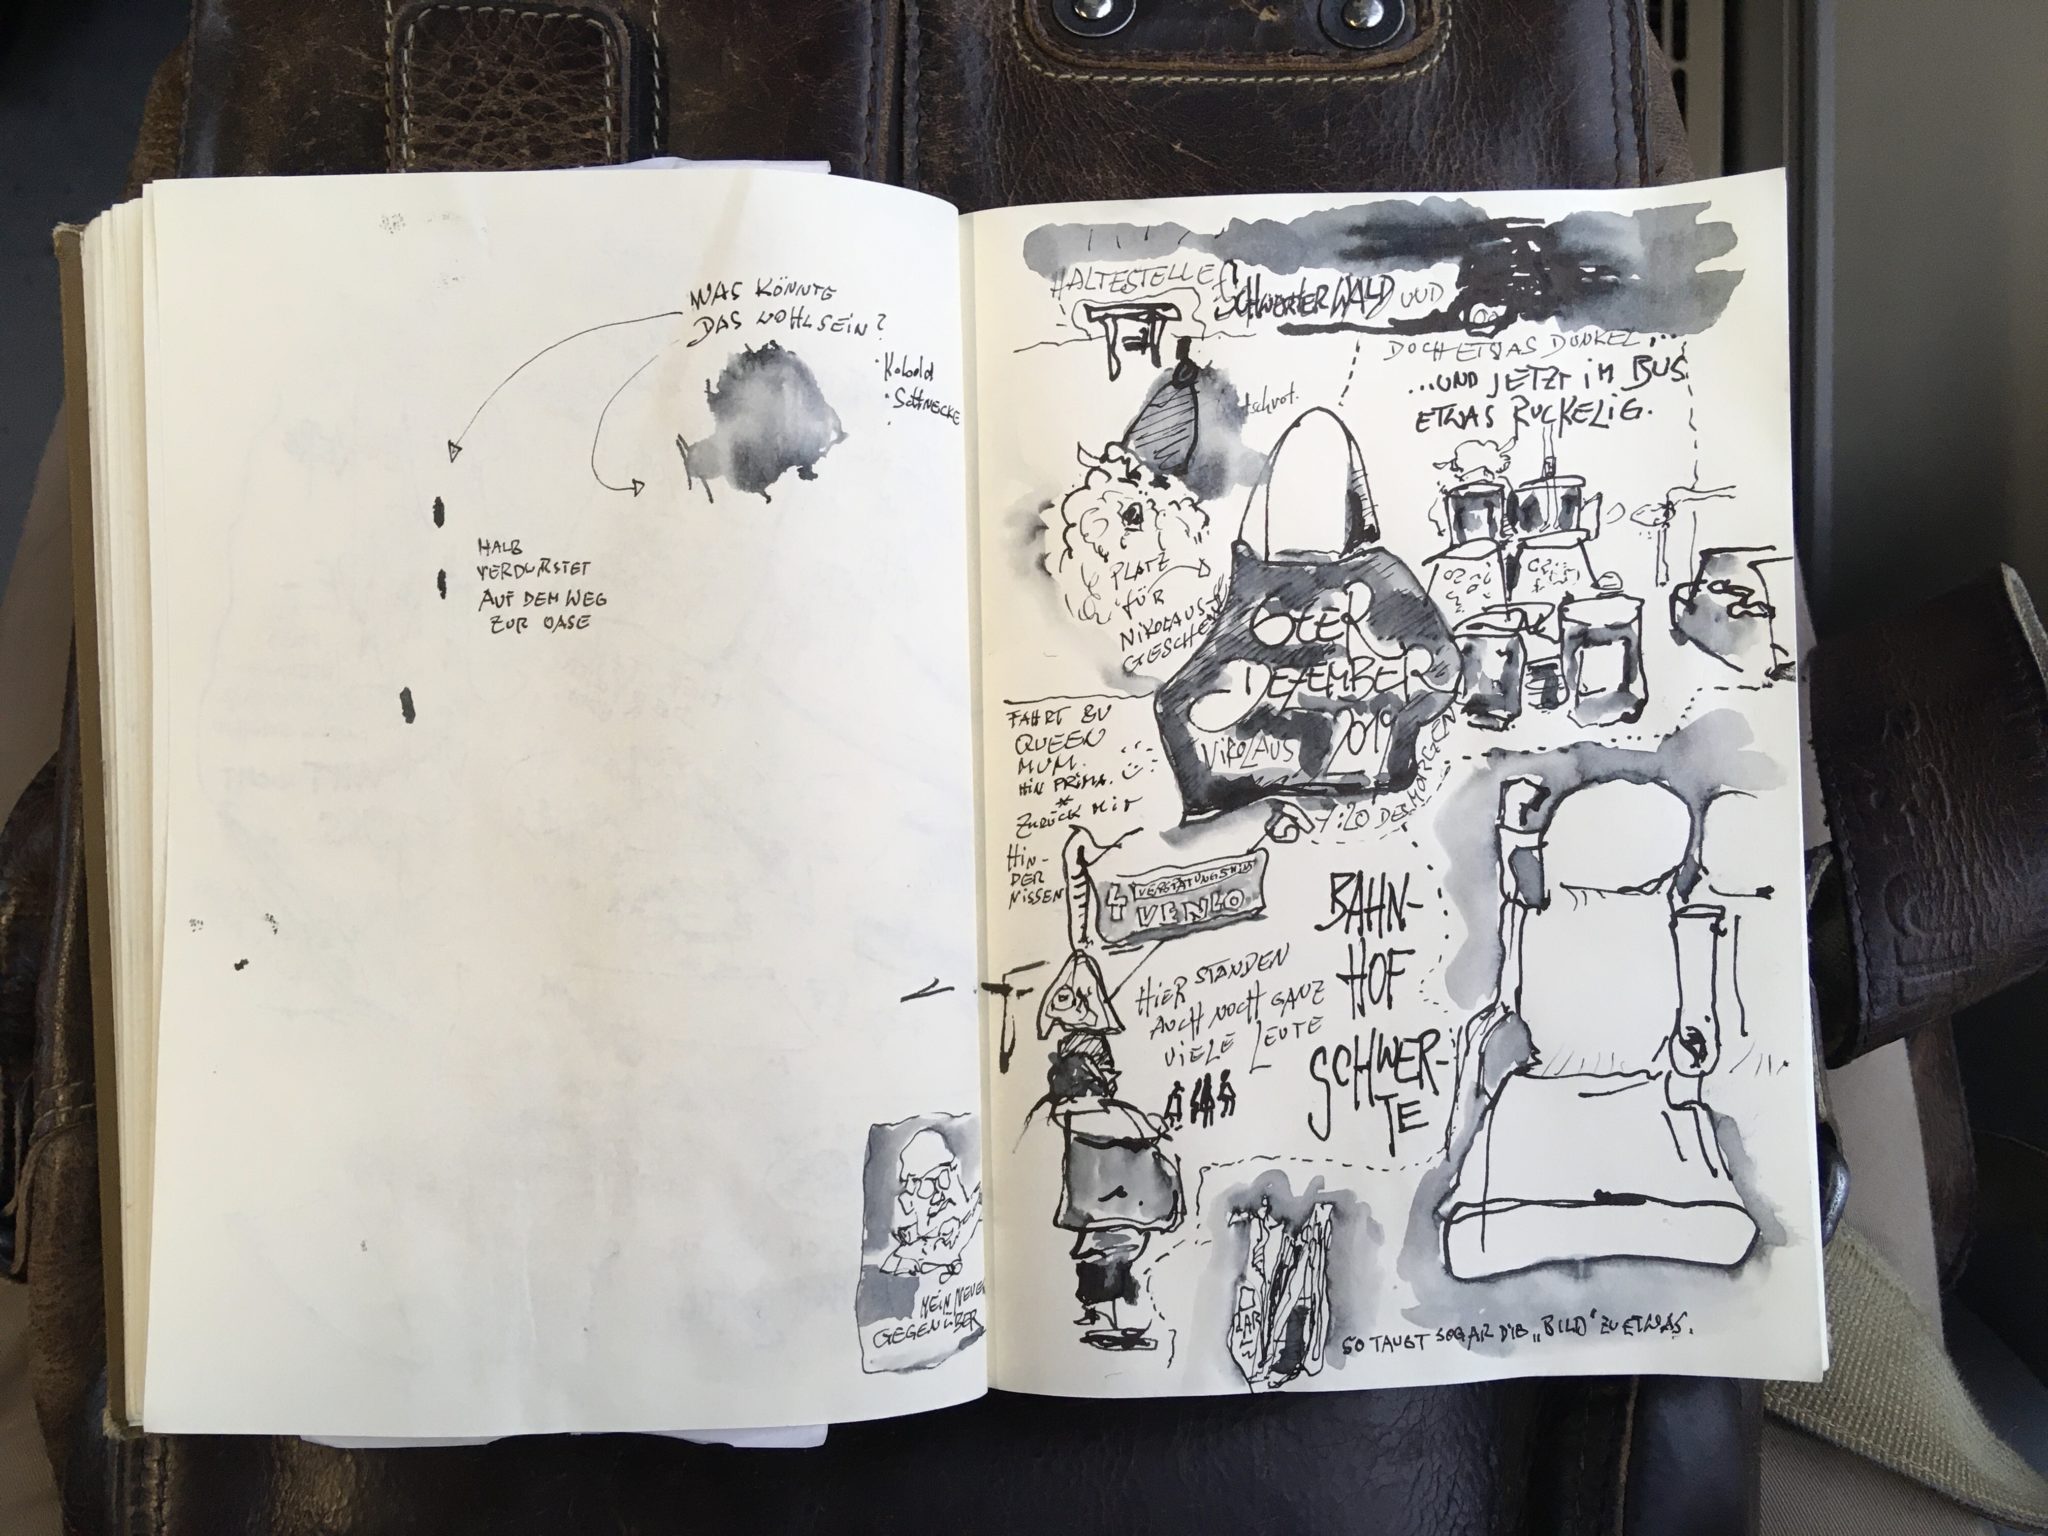 WAS KÖNNTE
DAS WOHL SEIN?
· Kobold
· SCHNECKE
HALB
VERDURSTET
AUF DEM WEG
ZUR OASE
MEIN NEUER
GEGENÜBER
HALTESTELLE
SCHWERTER WALD UND
DOCH ETWAS DUNKEL...
...UND JETZT IM BUS
ETWAS RUCKELIG.
PLATZ
FÜR
NIKOLAUS-
GESCHENK
6TER
DEZEMBER
2019
NIKOLAUS
7:20 DES MORGEN
FAHRT ZU
QUEEN
MUM.
HIN PRIMA.
ZURÜCK MIT
HIN-
DER
NISSEN
4
VENLO
HIER STANDEN
AUCH NOCH GANZ
VIELE LEUTE
BAHN-
HOF
SCHWER-
TE
SO TAUGT SOGAR DIE „BILD" ZU ETWAS.